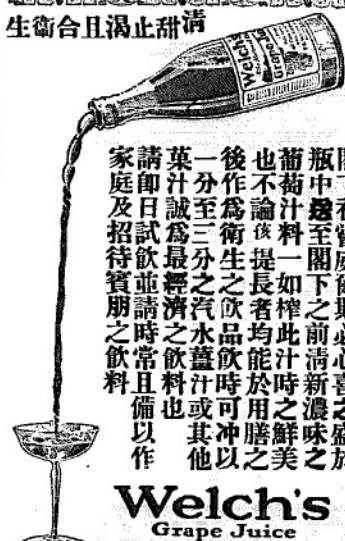 清甜止渴且合衛生
Welch's
Grape Juice
必心喜之盛於
瓶中送至閣下之前清新濃味之
葡萄汁料一如榨此汁時之鮮美
也不論孩提長者均能於用膳之
後作爲衛生之飲品飲時可冲以
一分至三分之汽水薑汁或其他
菓汁誠爲最經濟之飲料也
請卽日試飲並請時常且備以作
家庭及招待賓朋之飲料
Welch's
Grape Juice